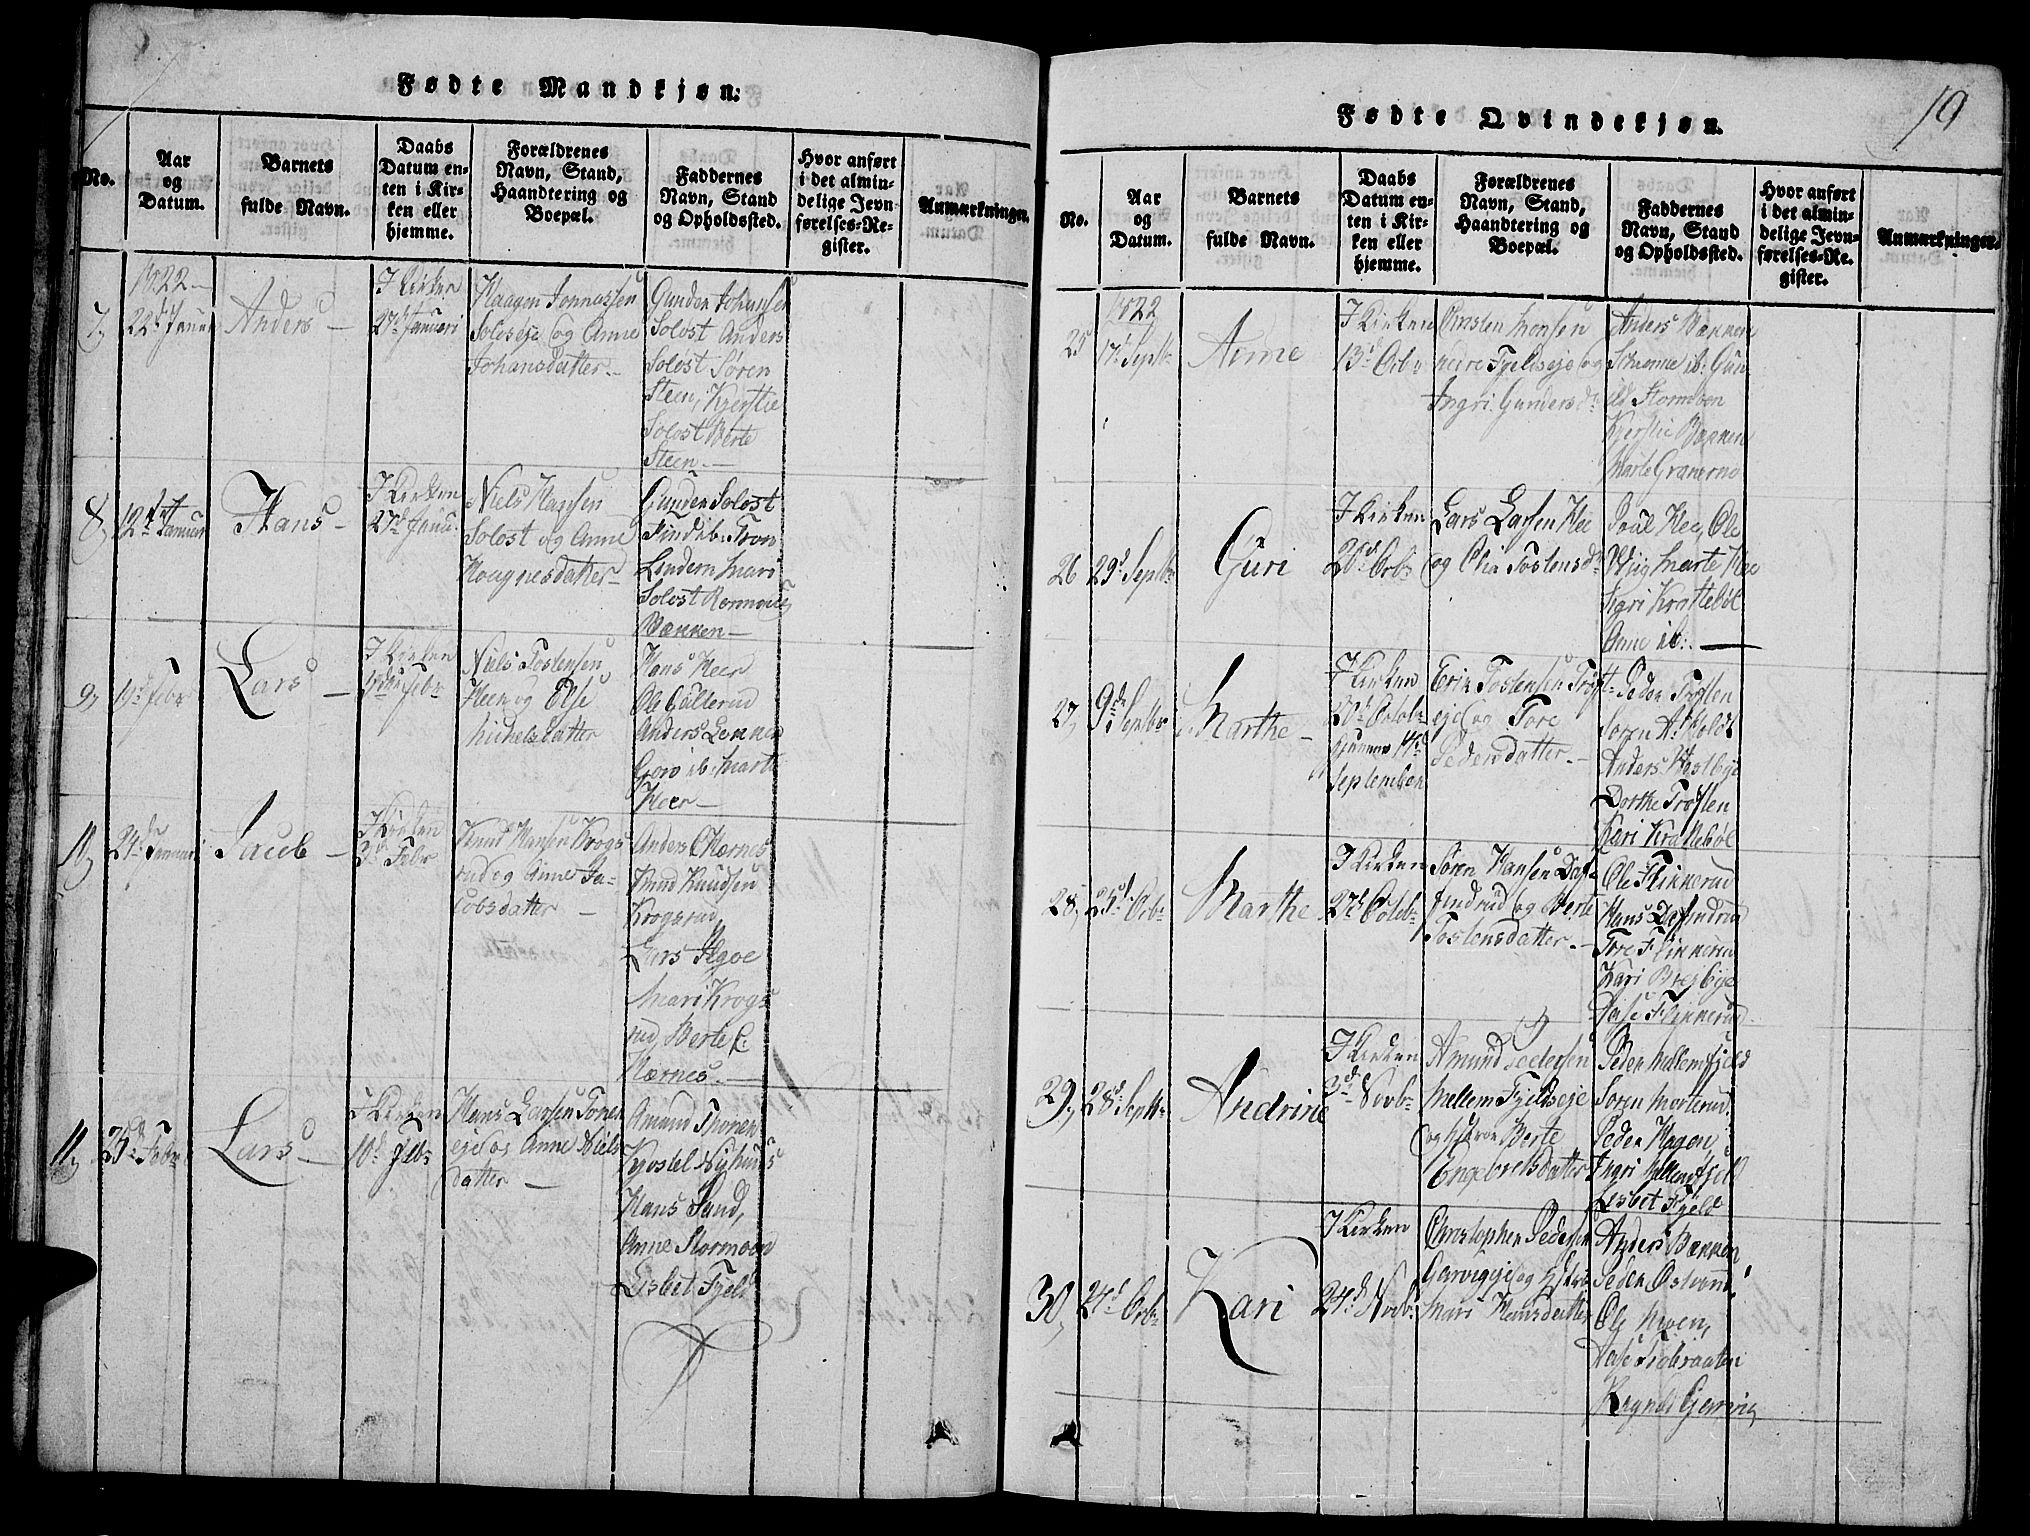 Fødte Mandkjøn:
No.
Aar
og
Datum.
Barnets
fulde Navn.
Daabs
Datum en-
ten i Kir-
ken eller
hjemme.
Forældrenes
Navn, Stand,
Haandtering og
Boepæl.
Faddernes
Navn, Stand
og Opholdssted.
Hvor anført
i det almin-
delige Jevn-
førelses-Re-
gister.
Anmærkninger.
1822
7,
22d Janu
Anders
I Kirken
27d Januari
Haagen Jonnassen
Soloseje og Anne
Johansdatter
Gunder Johansen
Solost Anders
Solost Søren
Steen, Kjerstie
Solost Berte
Steen
8,
12d Januar
Hans
I Kirken
27d Janu.
Niels Hansen
Solost og Anne
Haagnesdatter
Gunder Solost
ib. Tron
Lindern Mari
Solost
Bækken
9,
19d Febr
Lars
I Kirken
Febr
Niels Tostensen
Heer og Else
Michelsdatter
Hans Heer
Ole
Anders
ib. Marte
Heer
10,
24d Januari
Jacob
I Kirken
3d Febr
Knud Hansen Krogs
rud og Anne Ja-
cobsdatter
Anders Kærnes
Knud Knudsen
Krogsrud,
Lars
Mari Krogs
rud, Berte
Kærnes
11,
Febr
Lars
I Kirken
10d Feb
Hans Larsen
eje og Anne Niels
datter
Amund
Kjostel
Hans Sand,
Anne Stormoen
Lisbet Fjeld
19
Fødte Qvindekjøn.
No.
Aar
og
Datum.
Barnets
fulde Navn.
Daabs
Datum en-
ten i Kir-
ken eller
hjemme.
Forældrenes
Navn, Stand,
Haandtering og
Boepæl.
Faddernes
Navn, Stand
og Opholdssted.
Hvor anført
i det almin-
delige Jevn-
førelses-Re-
gister.
Anmærkninger.
1822
25
17d Septb
Anne
I Kirken
13d Octbr
Monsen
nedre Fjeldseje og
Ingri Gunders d:
Anders Bækken
ib: Gun
ild Stormoen
Kjerstie Bækken
Marte
26
29d Septb
Guri
I Kirken
20d Octb
Lars Larsen Hee
og Tostensd
Poul Hee, Ole
Wiig Marte Hee
Kari Krattebøl
Anne ib:
27,
9de Septbr
Marthe
I Kirken
20d Octob
hjemme 14d
September
Erik Tostensen Trøft-
eje og Tore
Pedersdatter
Peder Trøften
Søren
Anders Westbye
Dorthe Trøften
Kari Krattebøl
28,
25d Octb
Marthe
I Kirken
27d Octob
Søren Hansen Daf-
findrud og Berte
Tostensdatter
Ole Flinnerud
Hans Dafindrud
Tore Flinnerud
Kari Brejbye
Aase Flinnerud
29,
28d Septb
Andrine
I Kirken
3d Novb
Amund Pedersen
Mellem Fjeldseje
og Hstroe Berte
Engebretsdatter
Peder Mellemfjeld
Søren
Peder Hagen,
Ingri Mellemfjeld
Lisbet Fjeld
30,
24d Octb
Kari
I Kirken
24d Novb
Christopher Pedersen
Garvigeje og Hstro
Mari Hansdatter
Anders Bækken,
Peder
Ole Moen,
Aase
Ragnild